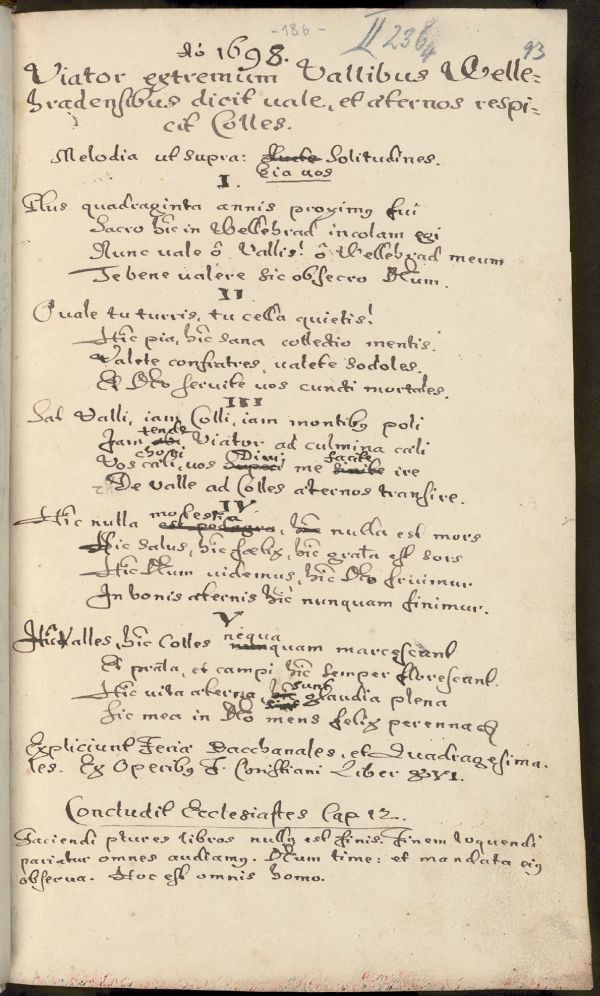 - 186 -
II 236/4
93
Aõ 1698.
Viator extremum Vallibus Welle=
hradensibus dicit vale, et æternos respi=
cit Colles.
Melodia ut supra: Solitudines.
Eia vos
I.
Plus quadraginta annis proximq fui
Sacro hic in Wellehrad incolam egi
Nunc vale ô Vallis! ô Wellehrad meum
Te bene valere sic obsecro Dẽum.
II
Quale tu turris, tu cella quietis!
Hic pia, hic sana collectio mentis.
Valete confratres, valete sodoles.
Et Dẽo servite vos cuncti mortales.
III
Sat Valli, iam Colli, iam montibq poli
tende
Jam Viator ad culmina cæli
chori Divi facite
Vos cæli, vos me ire
De valle ad Colles æternos transire.
IV
molestia
Hic nulla est podagra, hic nulla est mors
Hic salus, hic fælix, hic grata est sors
Hic Dẽum videmus, hic Dẽo fruimur
In bonis æternis hic nunquam finimur.
V
nequa
Hic Valles, hic Colles quam marcescant
Et prata, et campi hic semper florescant.
sunt
Hic vita æterna, hic gaudia plena
Sic mea in Dẽo mens felix perenna
Expliciunt Feriæ Bacchanales, et Quadragesima=
les. Ex Operibq F. Christiani Liber XVI.
Concludit Ecclesiastes Cap 12.
Faciendi plures libros nullq est finis. Finem loquendi
pariatur omnes audiamq. Dẽum time: et mandata eiq
observa. Hoc est omnis homo.